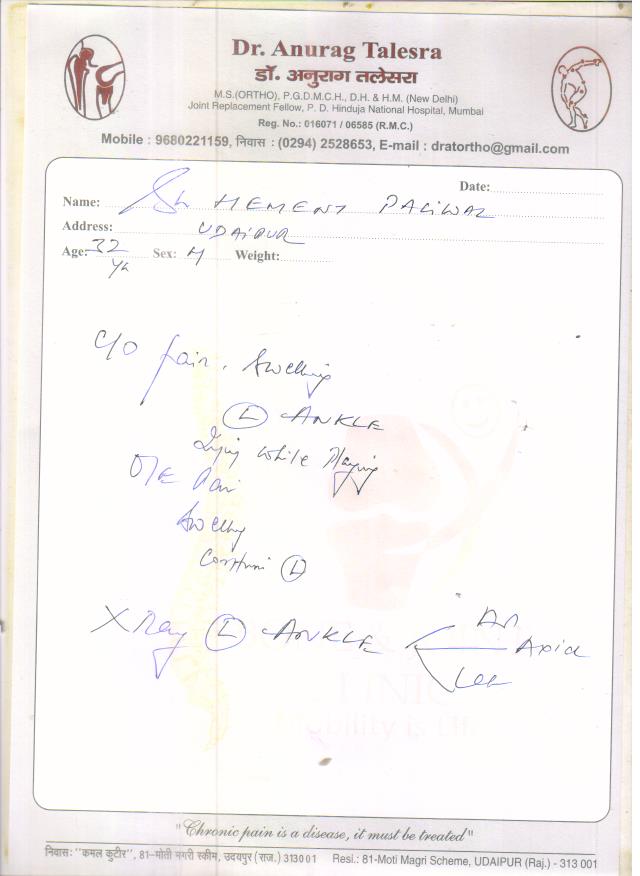 Dr. Anurag Talesra
डॉ. अनुराग तलेसरा
M.S.(ORTHO), P.G.D.M.C.H., D.H. & H.M. (New Delhi)
Joint Replacement Fellow, P. D. Hinduja National Hospital, Mumbai
Reg. No.: 016071 / 06585 (R.M.C.)
Mobile : 9680221159, निवास : (0294) 2528653, E-mail : dratortho@gmail.com
Date:
Name: Sh HEMENT PALIWAL
Address: UDAIPUR
Age: 32 Sex: M Weight:
Yr
C/O Pain, Swelling
(L) ANKLE
Injury while Playing
O/E Pain
Swelling
(L)
X Ray (L) ANKLE AP
Axial
Mobility is Life
"Chronic pain is a disease, it must be treated"
निवास: "कमल कुटीर", 81-मोती मगरी स्कीम, उदयपुर (राज.) 313001 Resi.: 81-Moti Magri Scheme, UDAIPUR (Raj.) - 313 001